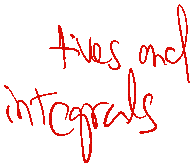 tives and
integrals